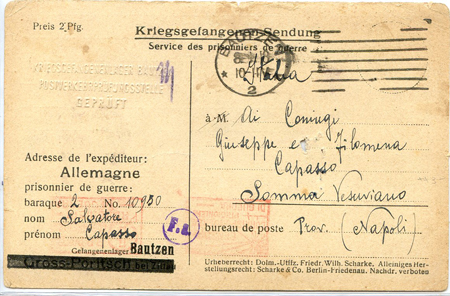 Preis 2 Pfg.
Kriegsgefangenen-Sendung
Service des prisonniers de guerre
BAUTZEN
2
KRIEGSGEFANGENENLAGER BAUTZEN
GEPRÜFT
à M. Ai Coniugi
Giuseppe e Filomena
Capasso
Somma Vesuviano
bureau de poste Prov. (Napoli)
Adresse de l'expéditeur:
Allemagne
prisonnier de guerre:
baraque 2 No. 10980
nom Salvatore
prénom Capasso
F.a.
Gefangenenlager Bautzen
Gross-Poritsch bei Zittau
Urheberrecht: Dolm.-Utffz. Friedr. Wilh. Scharke. Alleiniges Her-
stellungsrecht: Scharke & Co. Berlin-Friedenau. Nachdr. verboten